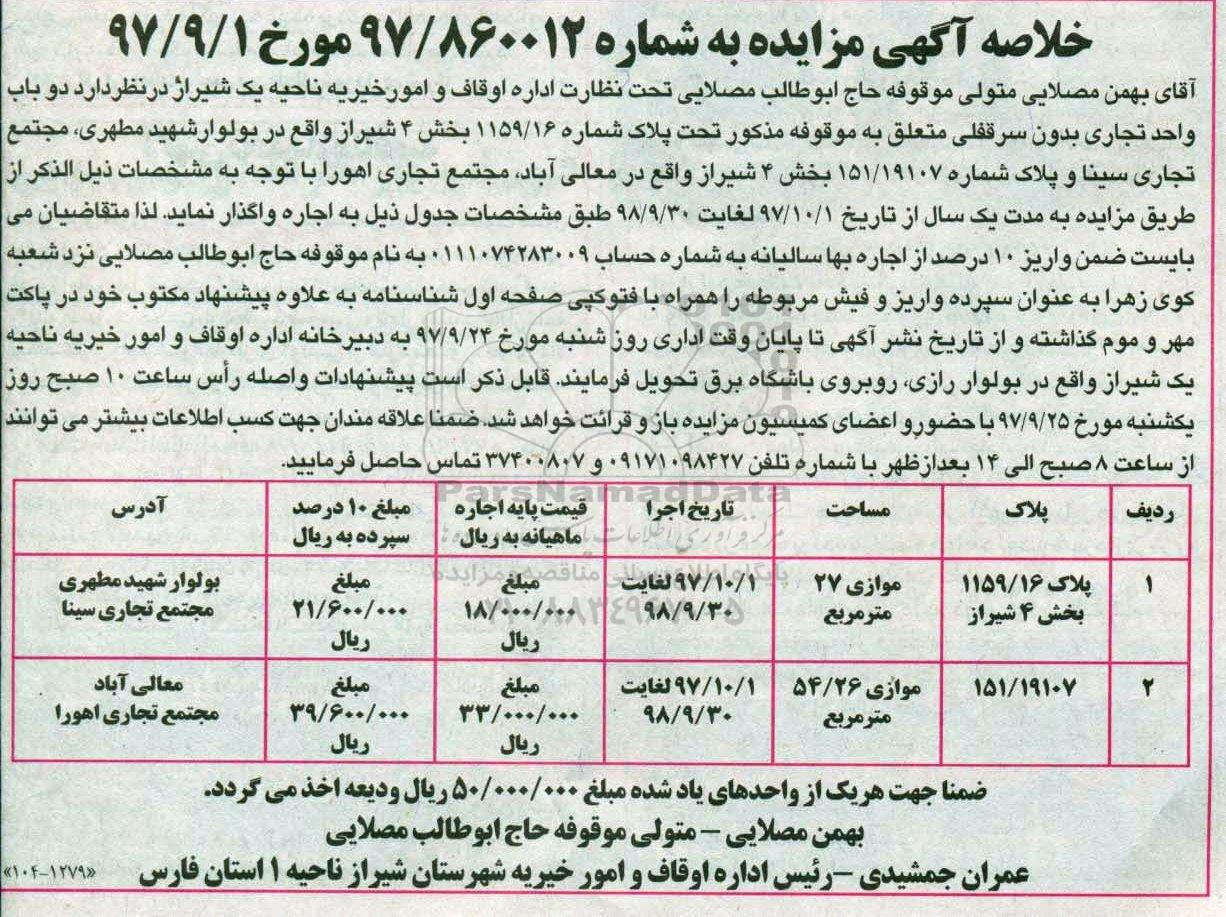 خلاصه آگهی مزایده به شماره ۹۷/۸۶۰۰۱۲ مورخ ۹۷/۹/۱
آقای بهمن مصلایی متولی موقوفه حاج ابوطالب مصلایی تحت نظارت اداره اوقاف و امورخیریه ناحیه یک شیراز درنظردارد دو باب
واحد تجاری بدون سرقفلی متعلق به موقوفه مذکور تحت پلاک شماره ۱۱۵۹/۱۶ بخش ۴ شیراز واقع در بولوارشهید مطهری، مجتمع
تجاری سینا و پلاک شماره ۱۵۱/۱۹۱۰۷ بخش ۴ شیراز واقع در معالی آباد، مجتمع تجاری اهورا با توجه به مشخصات ذیل الذکر از
طریق مزایده به مدت یک سال از تاریخ ۹۷/۱۰/۱ لغایت ۹۸/۹/۳۰ طبق مشخصات جدول ذیل به اجاره واگذار نماید. لذا متقاضیان می
بایست ضمن واریز ۱۰ درصد از اجاره بها سالیانه به شماره حساب ۰۱۱۱۰۷۴۲۸۳۰۰۹ به نام موقوفه حاج ابوطالب مصلایی نزد شعبه
کوی زهرا به عنوان سپرده واریز و فیش مربوطه را همراه با فتوکپی صفحه اول شناسنامه به علاوه پیشنهاد مکتوب خود در پاکت
مهر و موم گذاشته و از تاریخ نشر آگهی تا پایان وقت اداری روز شنبه مورخ ۹۷/۹/۲۴ به دبیرخانه اداره اوقاف و امور خیریه ناحیه
یک شیراز واقع در بولوار رازی، روبروی باشگاه برق تحویل فرمایند. قابل ذکر است پیشنهادات واصله رأس ساعت ۱۰ صبح روز
یکشنبه مورخ ۹۷/۹/۲۵ با حضورو اعضای کمیسیون مزایده باز و قرائت خواهد شد. ضمنا علاقه مندان جهت کسب اطلاعات بیشتر می توانند
از ساعت ۸ صبح الی ۱۴ بعدازظهر با شماره تلفن ۰۹۱۷۱۰۹۸۴۲۷ و ۳۷۴۰۰۸۰۷ تماس حاصل فرمایید.
ParsNamadData
ردیف پلاک مساحت تاریخ اجرا قیمت پایه اجاره ماهیانه به ریال مبلغ ۱۰ درصد سپرده به ریال آدرس
۱ پلاک ۱۱۵۹/۱۶ بخش ۴ شیراز موازی ۲۷ مترمربع ۹۷/۱۰/۱ لغایت ۹۸/۹/۳۰ مبلغ ۱۸/۰۰۰/۰۰۰ ریال مبلغ ۲۱/۶۰۰/۰۰۰ ریال بولوار شهید مطهری مجتمع تجاری سینا
۲ ۱۵۱/۱۹۱۰۷ موازی ۵۴/۲۶ مترمربع ۹۷/۱۰/۱ لغایت ۹۸/۹/۳۰ مبلغ ۳۳/۰۰۰/۰۰۰ ریال مبلغ ۳۹/۶۰۰/۰۰۰ ریال معالی آباد مجتمع تجاری اهورا
ضمنا جهت هریک از واحدهای یاد شده مبلغ ۵۰/۰۰۰/۰۰۰ ریال ودیعه اخذ می گردد.
بهمن مصلایی – متولی موقوفه حاج ابوطالب مصلایی
عمران جمشیدی – رئیس اداره اوقاف و امور خیریه شهرستان شیراز ناحیه ۱ استان فارس
«۱۰۴-۱۲۷۹»